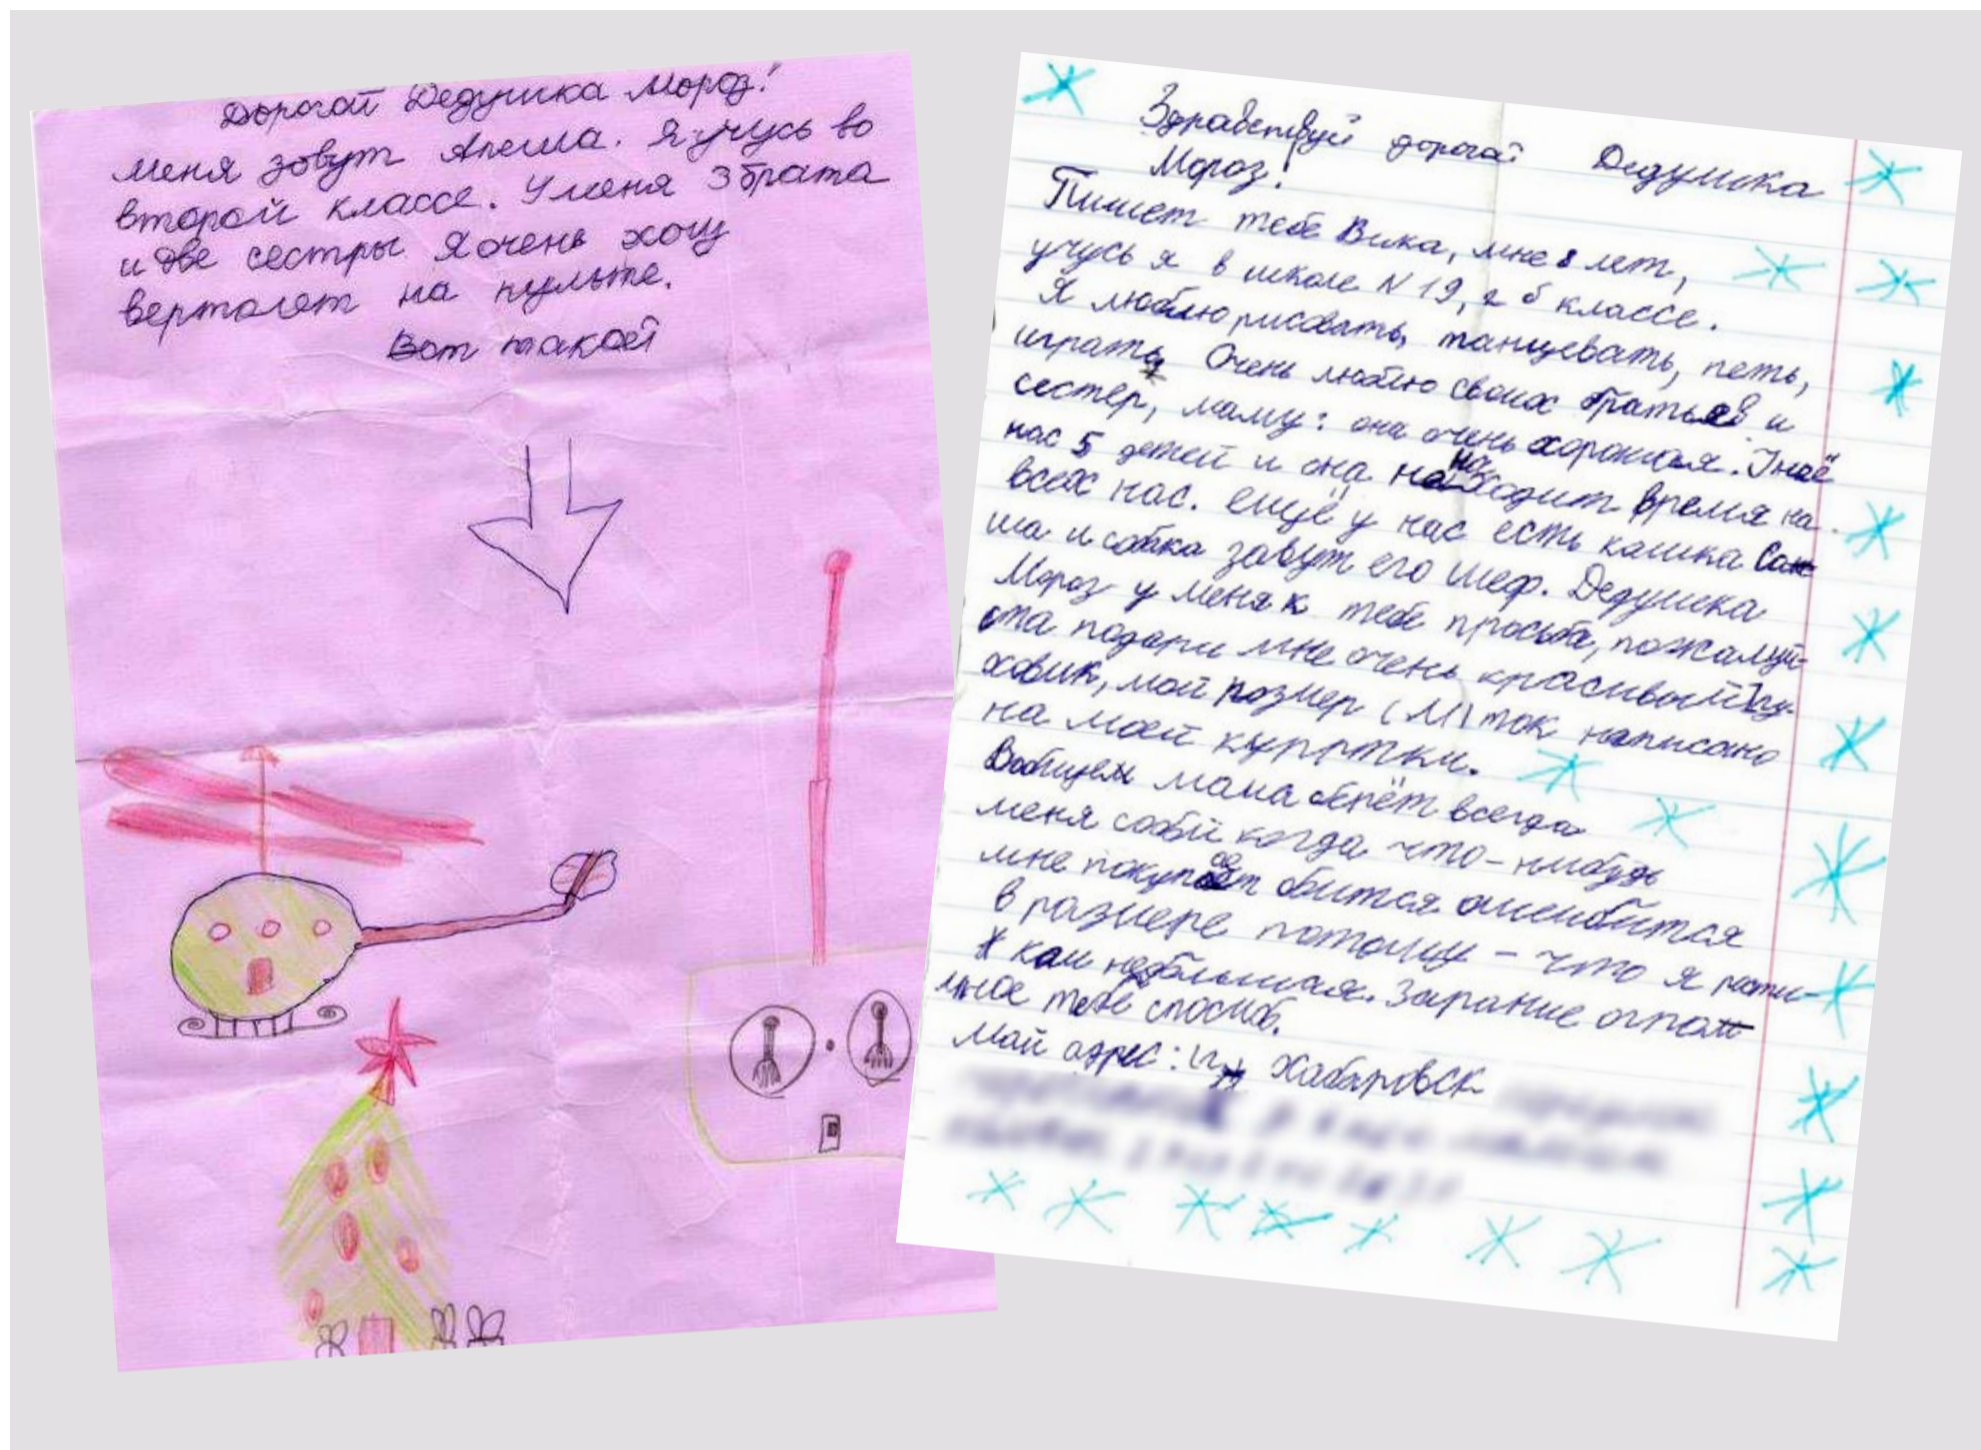 Дорогой Дедушка Мороз!
меня зовут Алеша. Я учусь во
второй классе. У меня 3 брата
и две сестры Я очень хощ
вертолет на пульте.
Вот такой
Здравствуй дорогой Дедушка
Мороз!
Пишет тебе Вика, мне 8 лет,
учусь я в школе N 19, 2 б классе.
Я люблю рисовать, танцевать, петь,
играть, Очень люблю своих братьев и
сестер, маму: она очень хорошая. У неё
нас 5 детей и она находит время на
всех нас. ещё у нас есть кошка
и собака завут его Шеф. Дедушка
Мороз у меня к тебе просьба, пожалуй-
ста подари мне очень красивый пу-
ховик, мой розмер (М) ток написано
на моей курртки.
Вобщем мама берёт всегда
меня собй когда что-нибудь
мне покупает обится ошибится
в размере потому - что я
как небльшая. Зарание огром
мное тебе спосиб.
Мой адрес: г. Хабаровск